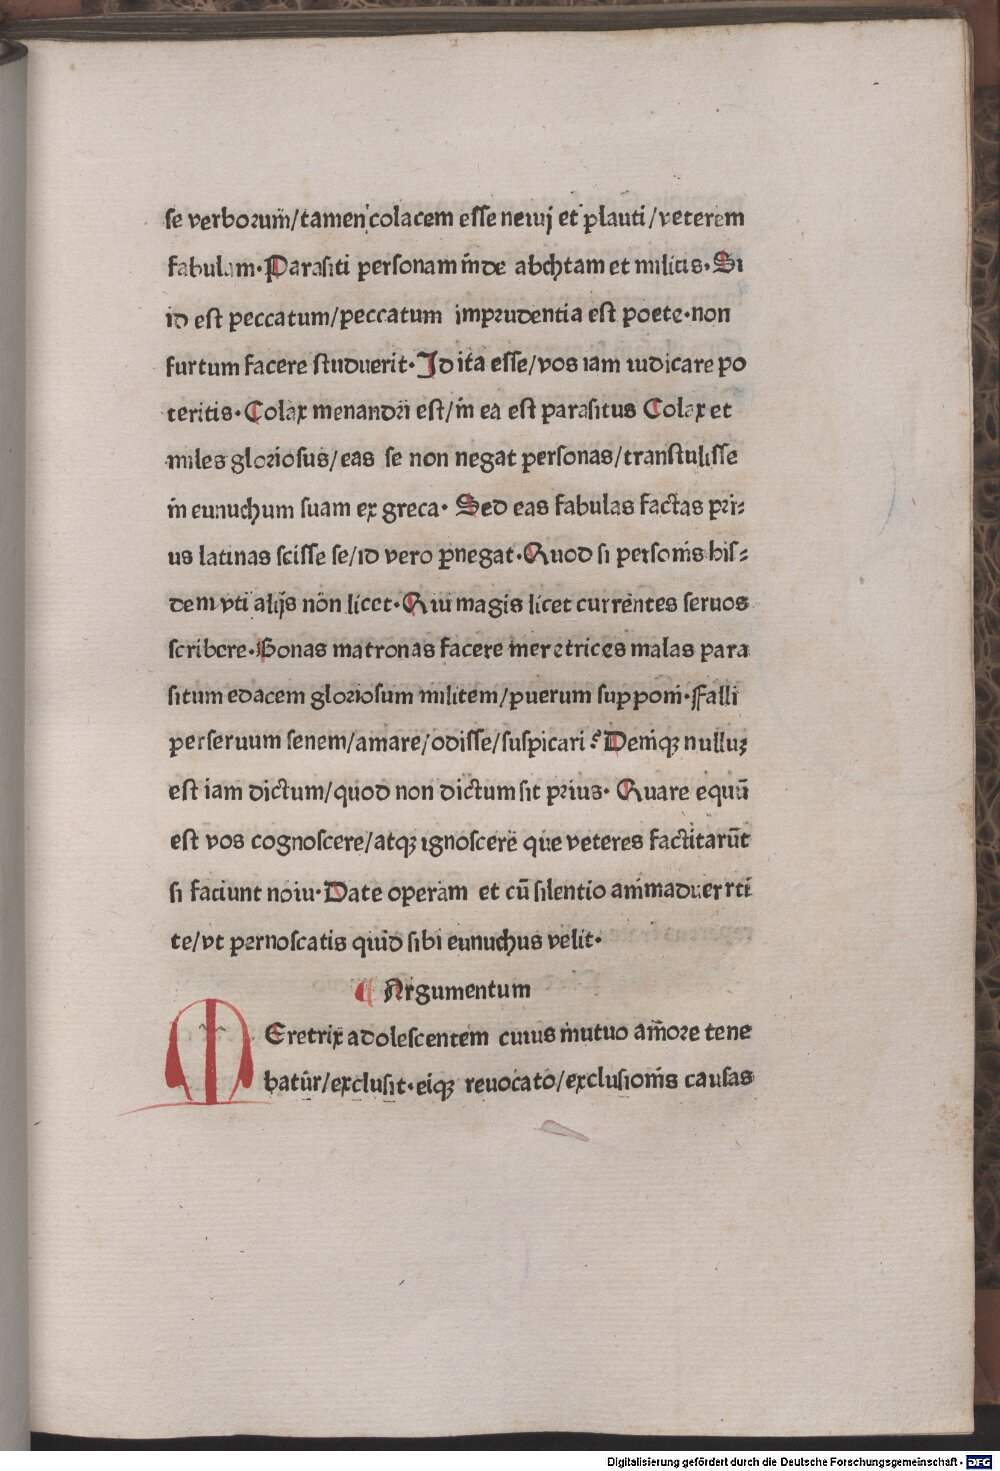 se verborum̄/tamen colacem esse neuuj et plauti/veterem
fabulam·Parasiti personam īnde abchtam et militis·Si
id est peccatum/peccatum imprudentia est poete·non
furtum facere studuerit·Id ita esse/vos iam iudicare po
teritis·Colax menandri est/in ea est parasitus Colax et
miles gloriosus/eas se non negat personas/transtulisse
in eunuchum suam ex greca·Sed eas fabulas factas pri⸗
us latinas scisse se/id vero ꝑnegat·Quod si persoīs his⸗
dem vti alijs non licet·Qui magis licet currentes seruos
scribere·Bonas matronas facere meretrices malas para
situm edacem gloriosum militem/puerum supponi·Falli
per seruum senem/amare/odisse/suspicari? Deniqꝫ nulluꝫ
est iam dictum/quod non dictum sit prius·Quare equū
est vos cognoscere/atqꝫ ignoscere que veteres factitarūt
si faciunt noiu·Date operam et cū silentio animaduerrti
te/vt pernoscatis quid sibi eunuchus velit·
¶ Argumentum
MEretrix adolescentem cuius mutuo amore tene
batur/exclusit·eiqꝫ reuocato/exclusionis causas
Digitalisierung gefördert durch die Deutsche Forschungsgemeinschaft - DFG